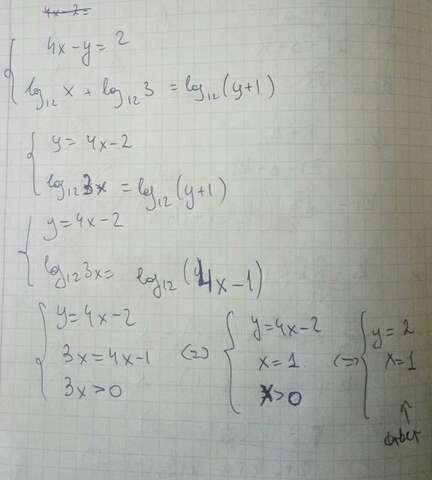 4x-2=
4x-y=2
log₁₂ x + log₁₂ 3 = log₁₂ (y+1)
y=4x-2
log₁₂ 3x = log₁₂ (y+1)
y=4x-2
log₁₂ 3x = log₁₂ (4x-1)
y=4x-2
3x=4x-1
3x>0
<=>
y=4x-2
x=1
x>0
<=>
y=2
x=1
↑
ответ